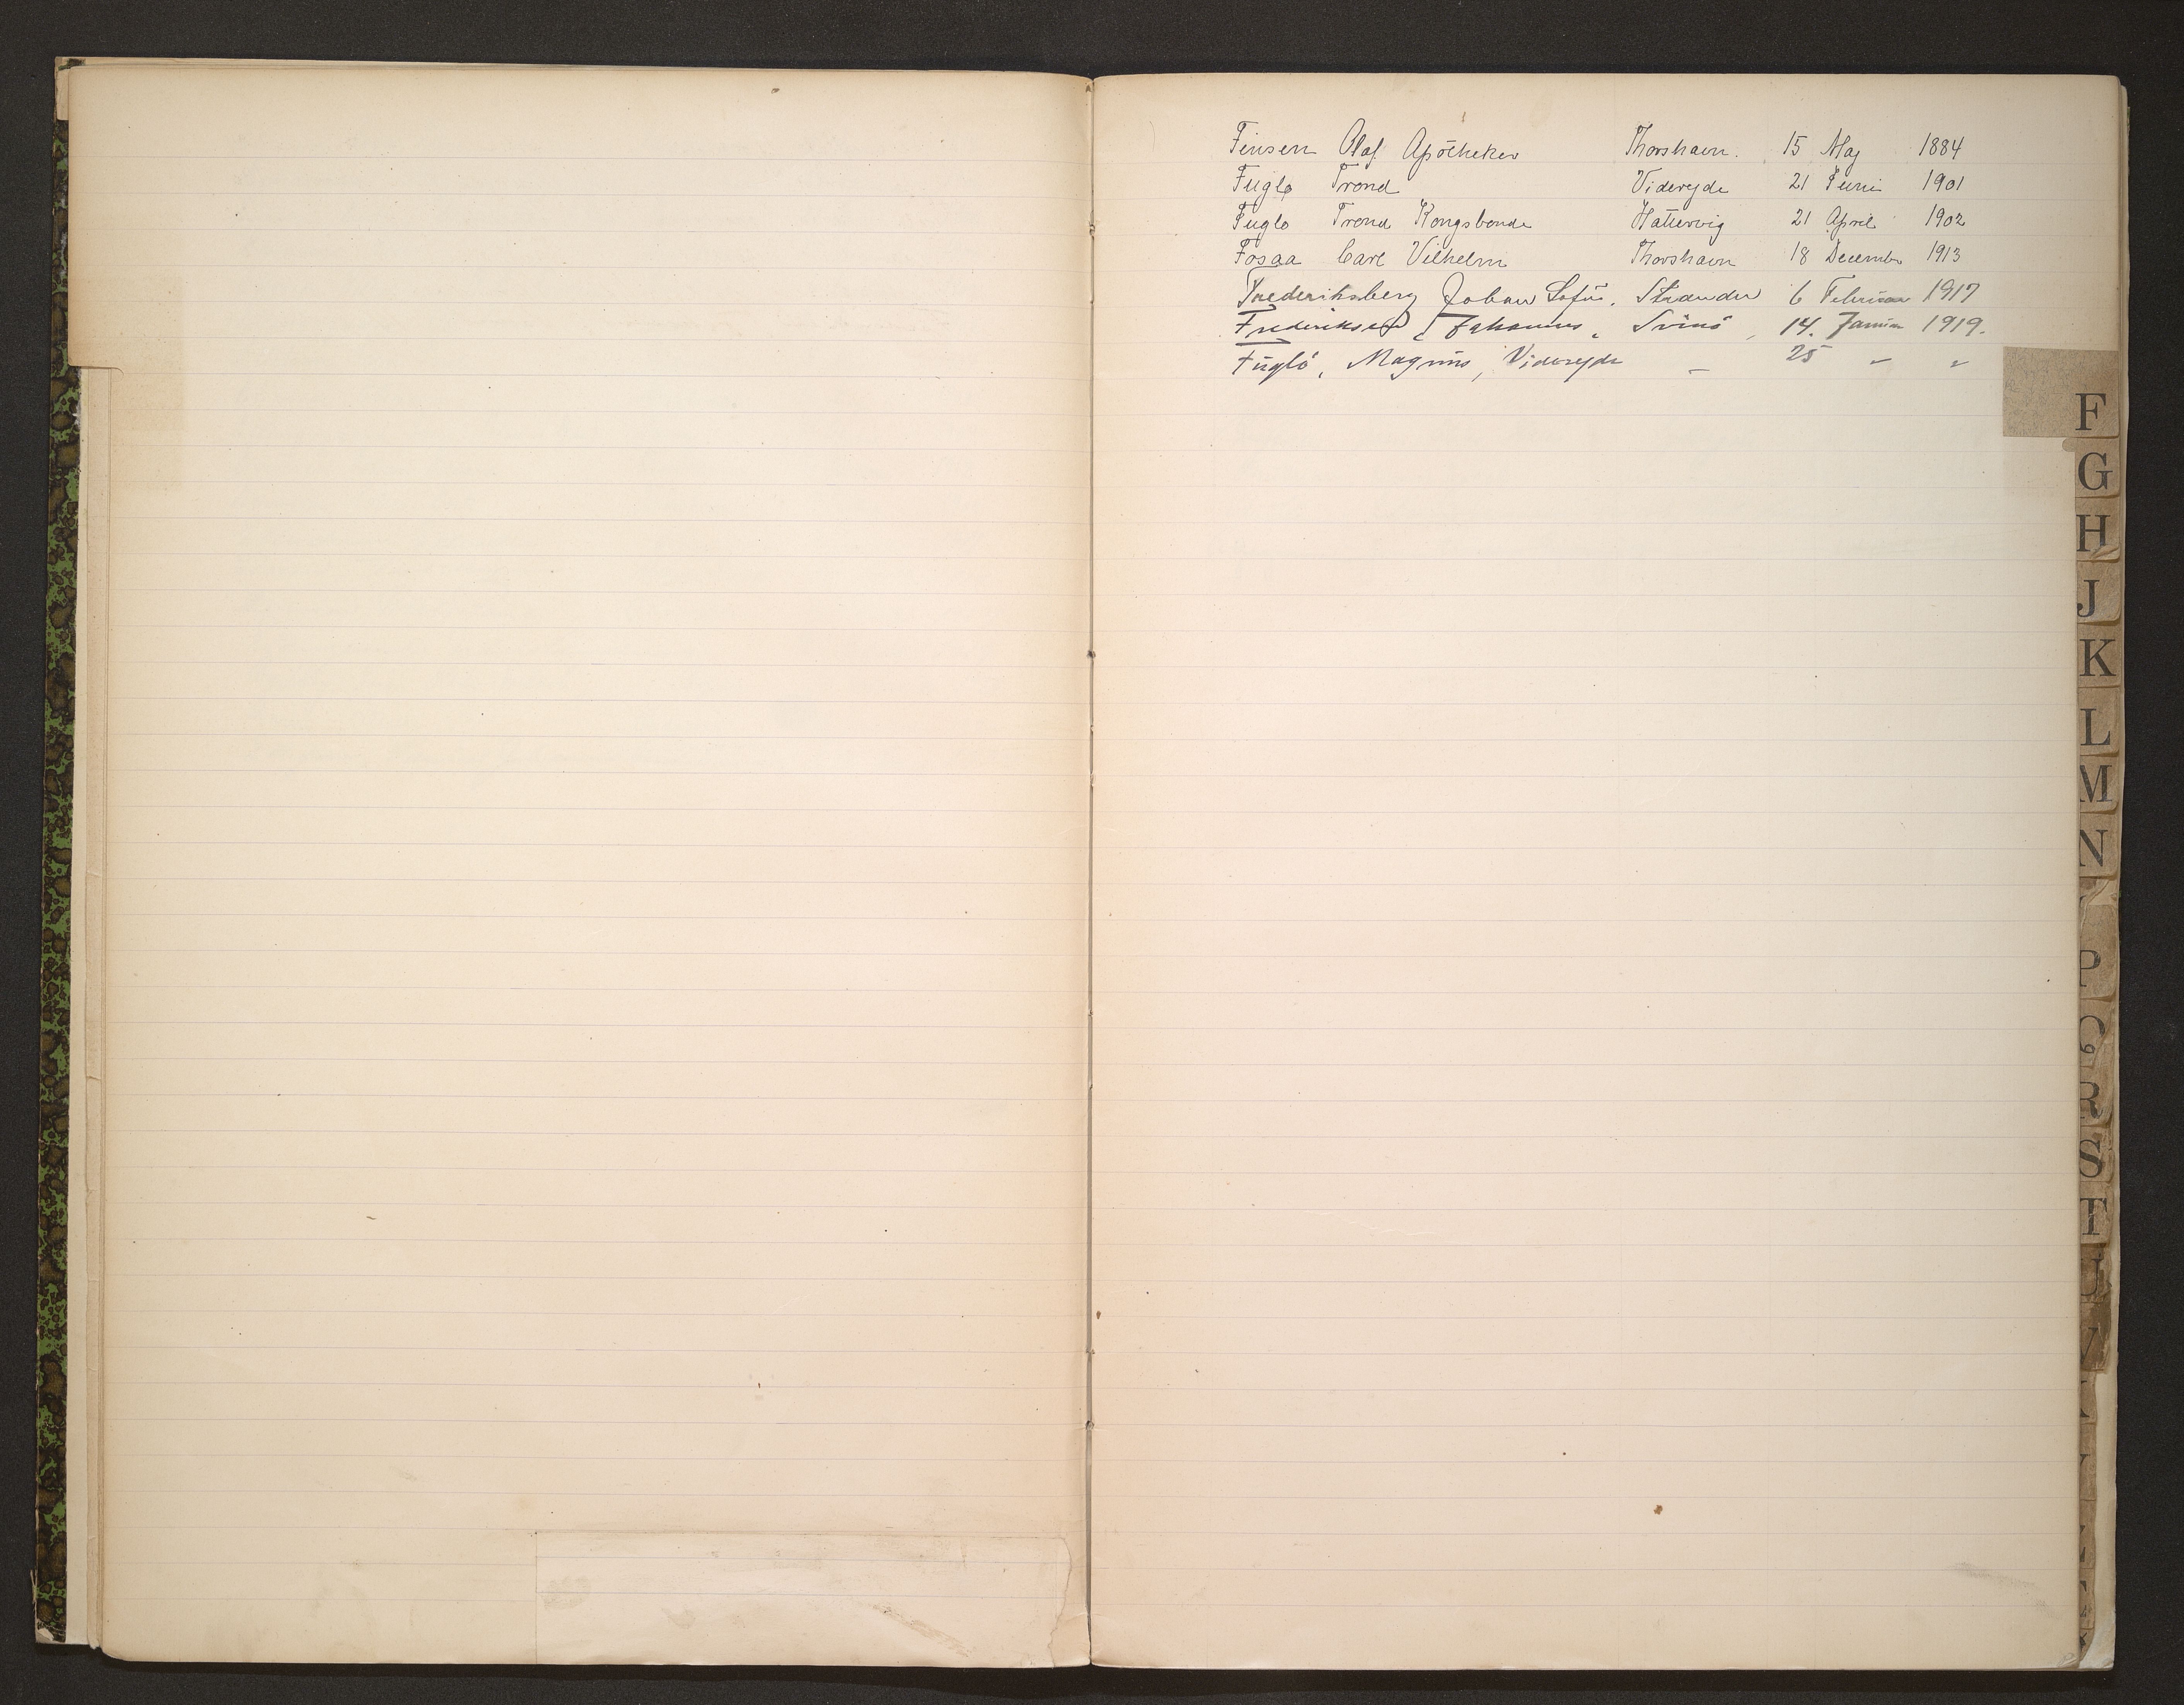 Finsen Olaf Apotheker Thorshavn. 15 Maj 1884
Fuglø Trond Viderejde 21 Juni 1901
Fuglø Trond Kongsbonde Hattervig 21 April 1902
Fosaa Carl Vilhelm Thorshavn 18 December 1913
Frederiksberg Johan Sofus. Strender 6 Februar 1917
Frederiksen, Johannes, Svinö, 14. Januar 1919.
Fuglö, Magnus, Viderejde — 25 " "
F
G
H
J
K
L
M
N
P
Q
R
S
T
U
V